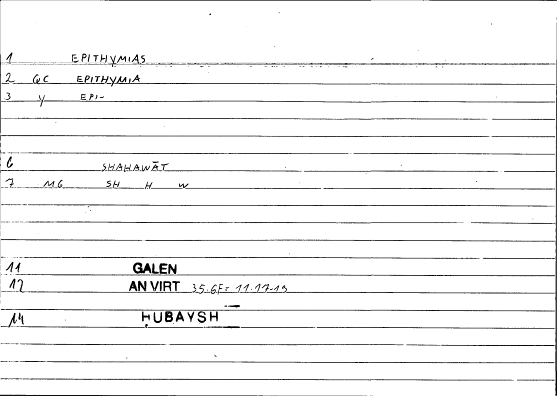 1 EPITHYMIAS
2 GC EPITHYMIA
3 y EPI-
6 SHAHAWĀT
7 MG SH H W
11 GALEN
12 AN VIRT 35.6F= 11.17-19
14 ḤUBAYSH